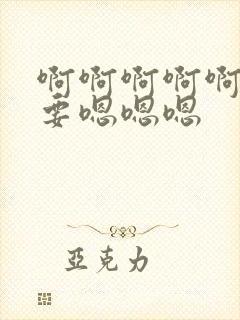 啊啊啊啊啊
要嗯嗯嗯
亚克力